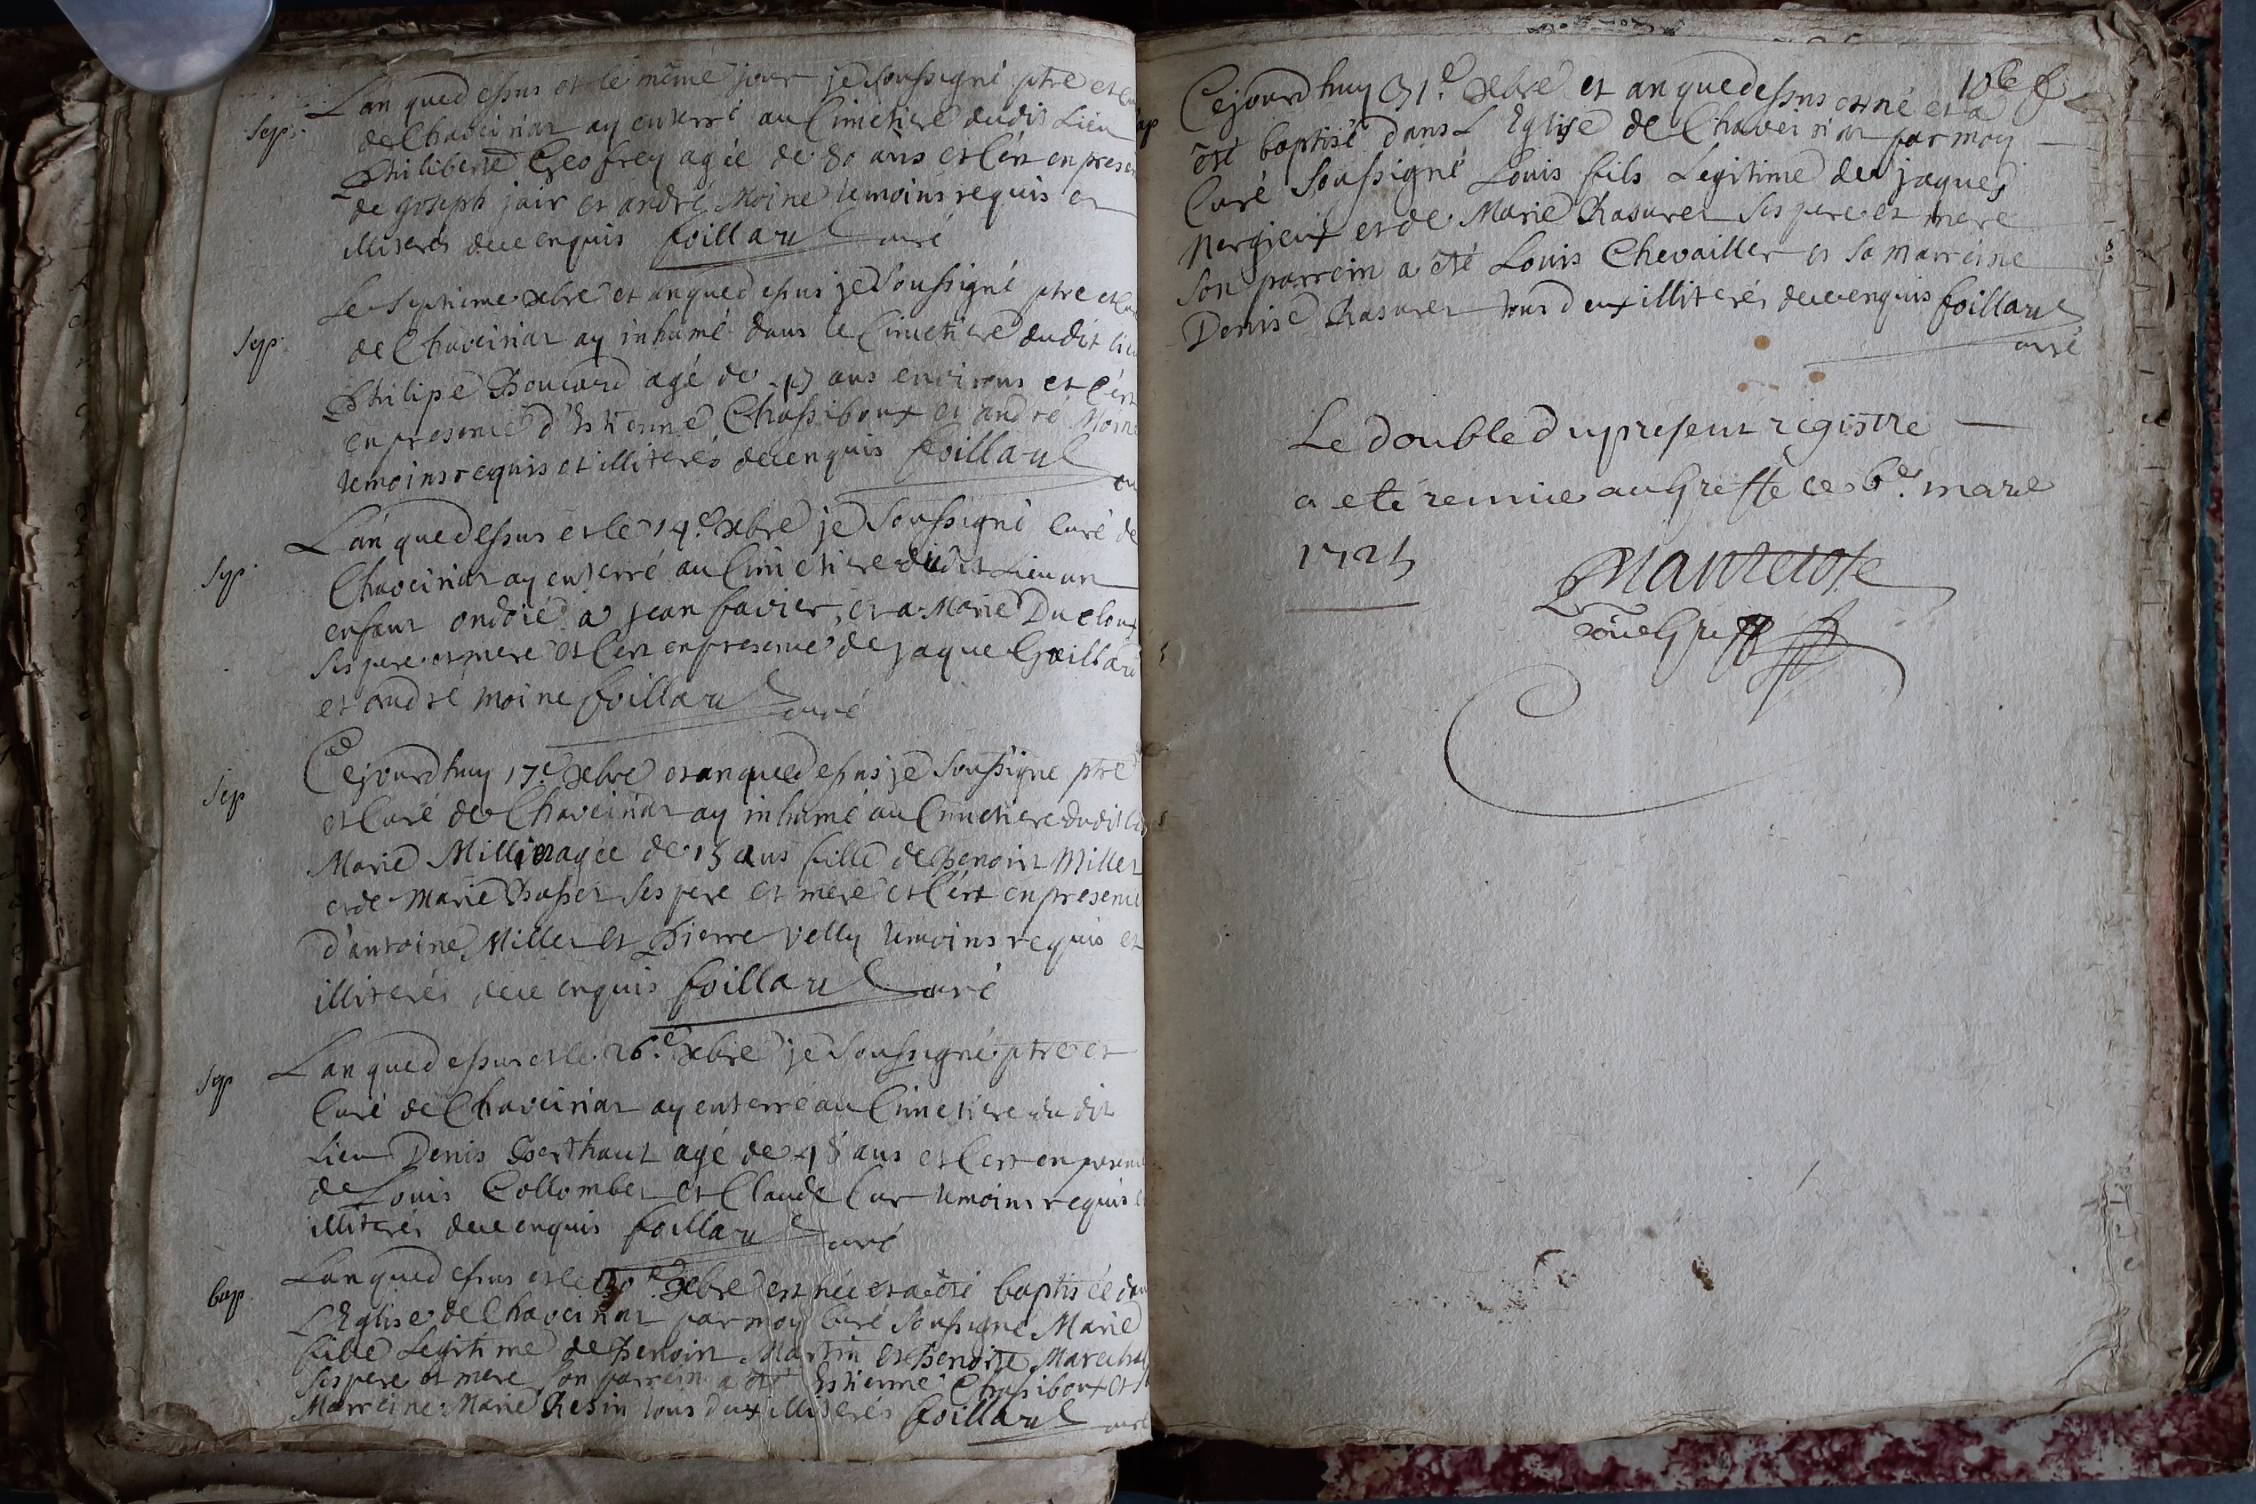 L'an que dessus et le même jour je soussigné ptre et
Sep. de Chaveiriat ay enterré au Cimetiere dudit Lieu
Philiberte Geofrey agée de 80 ans et c'est en presen
de joseph jair et andré Moine temoins requis et
illiterés de ce enquis foillard curé
Le Septieme xbre et an que dessus je Soussigné ptre et
Sep. de Chaveiriat ay inhumé dans le Cimetiere dudit lieu
Philipe Boucard agé de 45 ans environs et c'est
en presence d'Estienne Chassiboux et andré Moine
temoins requis et illiterés de ce enquis foillard
L'an que dessus et le 14.e xbre je Soussigné Curé de
Sep. Chaveiriat ay enterré au Cimetiere dudit Lieu un
enfant ondoié a jean favier, et a Marie Ducloux
ses pere et mere et c'est en presence de jaque Goillard
et andre moine foillard curé
Cejourdhuy 17.e xbre et an que dessus je Soussigne ptre
Sep et Curé de Chaveiriat ay inhumé au Cimetiere dudit
Marie Millet agée de 15 ans fille de Benoist Millet
et de Marie ses pere et mere et c'est en presence
d'antoine Millet et Pierre Velly temoins requis et
illiterés de ce enquis foillard curé
L'an que dessus et le 26.e xbre je soussigné ptre et
Sep Curé de Chaveiriat ay enterré au Cimetiere du dit
Lieu Denis Berthaut agé de 48 ans et c'est en presence
de Louis Collombet et Claude Cur temoins requis et
illiterés de ce enquis foillard curé
L'an que dessus et le 30.e xbre est née et a été baptisée dans
bap. L'Eglise de Chaveiriat par moy Curé Soussigné Marie
fille Legitime de Benoist Martin et Benoite Marechal
ses pere et mere son parrein a été Estienne Chassiboux et
Marreine Marie Resin tous deux illiterés foillard curé
Cejourdhuy 31.e xbre et an que dessus est né et a
été baptisé dans L'Eglise de Chaveiriat par moy
Curé Soussigné Louis fils Legitime de jaques
Nergieux et de Marie Rasurel ses pere et mere
Son parrein a été Louis Chevailler et sa marreine
Denise Rasurel tous deux illiterés de ce enquis foillard
curé
Le double du present registre
a eté remise au Greffe ce 6.e mars
1725